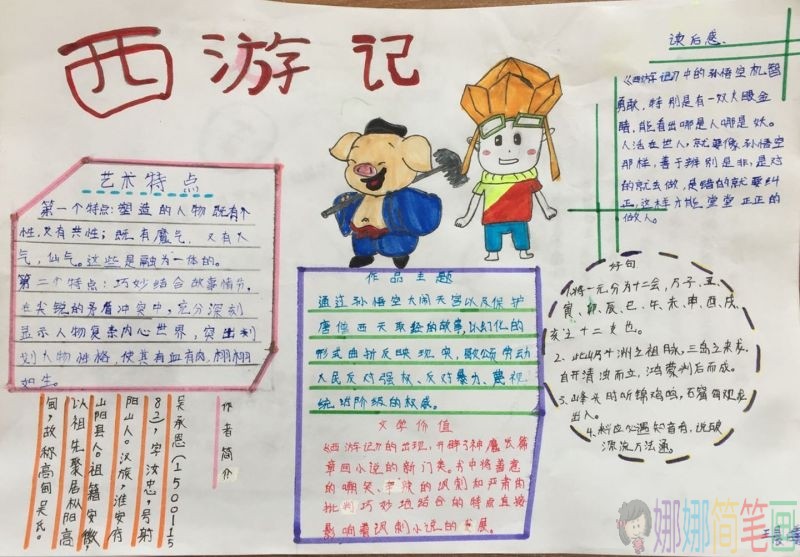 西游记
艺术特点
第一个特点:塑造的人物既有个
性,又有共性;既有魔气,又有人
气,仙气。这些是融为一体的。
第二个特点:巧妙结合故事情节,
在尖锐的矛盾冲突中,充分深刻
显示人物复杂内心世界,突出刻
划人物性格,使其有血有肉,栩栩
如生。
作者简介
吴承恩(1500115
82),字汝忠,号射
阳山人。汉族,淮安府
山阳县人。祖籍安徽
以祖先聚居枞阳高
甸,故称高甸吴氏。
作品主题
通过孙悟空大闹天宫以及保护
唐僧西天取经的故事,以幻化的
形式曲折反映现实,歌颂劳动
人民反对强权、反对暴力、蔑视
统治阶级的权威。
文学价值
《西游记》的出现,开辟了神魔长篇
章回小说的新门类。书中将善意
的嘲笑、辛辣的讽刺和严肃的
批判巧妙地结合的特点直接
影响着讽刺小说的发展。
读后感
《西游记》中的孙悟空机智
勇敢,特别是有一双火眼金
睛,能看出哪是人哪是妖。
人活在世人,就要像孙悟空
那样,善于辨别是非,是对
的就去做,是错的就要纠
正,这样才能堂堂正正的
做人。
好句
1.将一元分为十二会,乃子、丑、
寅、卯、辰、巳、午、未、申、酉、戌、
亥之十二支也。
2、此山乃十洲之祖脉,三岛之来龙,
自开清浊而立,鸿蒙判后而成。
3、峰头时听锦鸡鸣,石窟每观龙
出入。
4、料应必遇知音有,说破
源流万法通。
娜娜简笔画